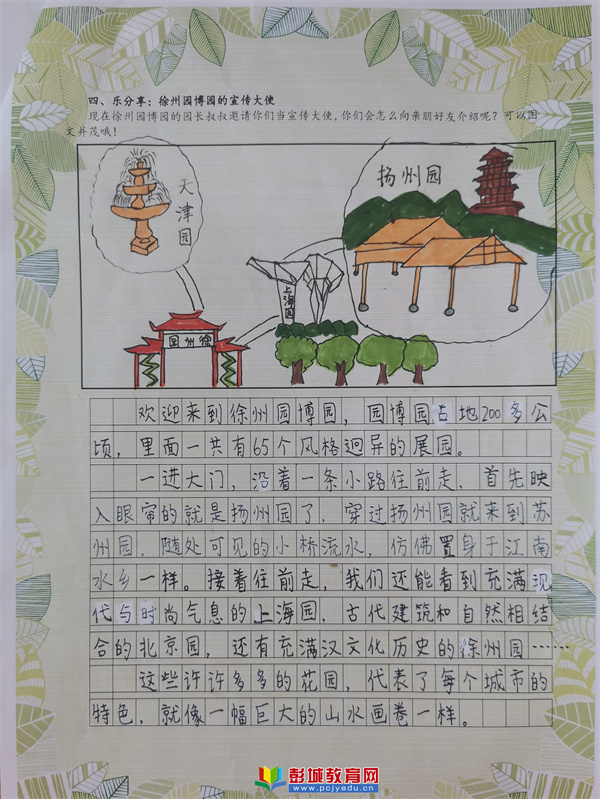 四、乐分享：徐州园博园的宣传大使
现在徐州园博园的园长叔叔邀请你们当宣传大使，你们会怎么向亲朋好友介绍呢？可以图
文并茂哦！
天津园
扬州园
上海园
徐州园
欢迎来到徐州园博园，园博园占地200多公
顷，里面一共有65个风格迥异的展园。
一进大门，沿着一条小路往前走，首先映
入眼帘的就是扬州园了，穿过扬州园就来到苏
州园，随处可见的小桥流水，仿佛置身于江南
水乡一样。接着往前走，我们还能看到充满现
代与时尚气息的上海园，古代建筑和自然相结
合的北京园，还有充满汉文化历史的徐州园……
这些许许多多的花园，代表了每个城市的
特色，就像一幅巨大的山水画卷一样。
彭城教育网
www.pcjyedu.cn